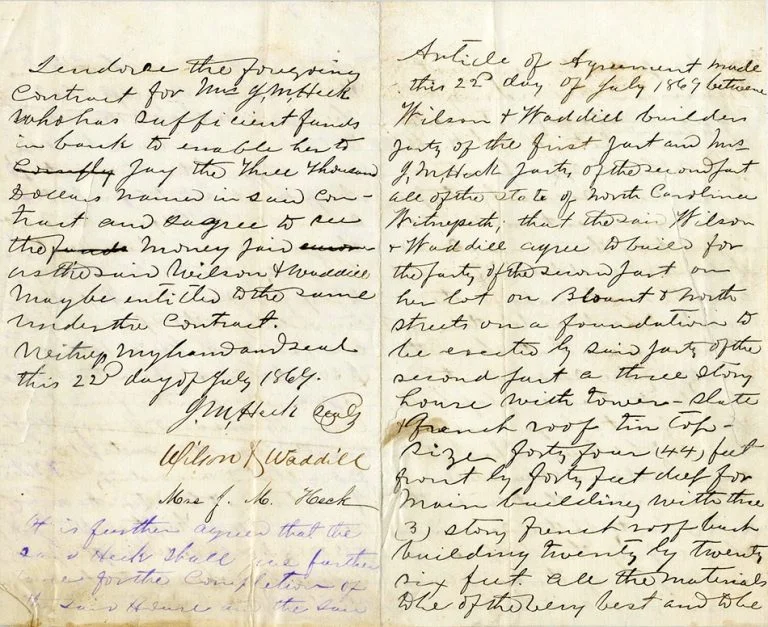 I endorse the foregoing
Contract for Mrs J, M, Heck
who has sufficient funds
in bank to enable her to
Comply pay the Three Thousand
Dollars named in said Con-
tract and I agree to see
the funds money paid
as the said Wilson & Waddill
may be entitled to the same
under the Contract.
Witness my hand and seal
this 22d day of July 1869.
J. M, Heck
Wilson & Waddill
Mrs J. M. Heck
It is further agreed that the
said Heck shall further
for the Completion of
said House
Article of Agreement made
this 22d day of July 1869 between
Wilson & Waddill builders
party of the first part and Mrs
J, M, Heck party of the second part
all of the State of North Carolina
Witnesseth; that the said Wilson
& Waddill agree to build for
the party of the second part on
her lot on Blount & North
streets on a foundation to
be erected by said party of the
second part a three story
house with tower - slate
& French roof tin top -
size forty four (44) feet
front by forty feet deep for
main building with three
(3) story French roof back
building twenty by twenty
six feet. all the materials
to be of the very best and to be